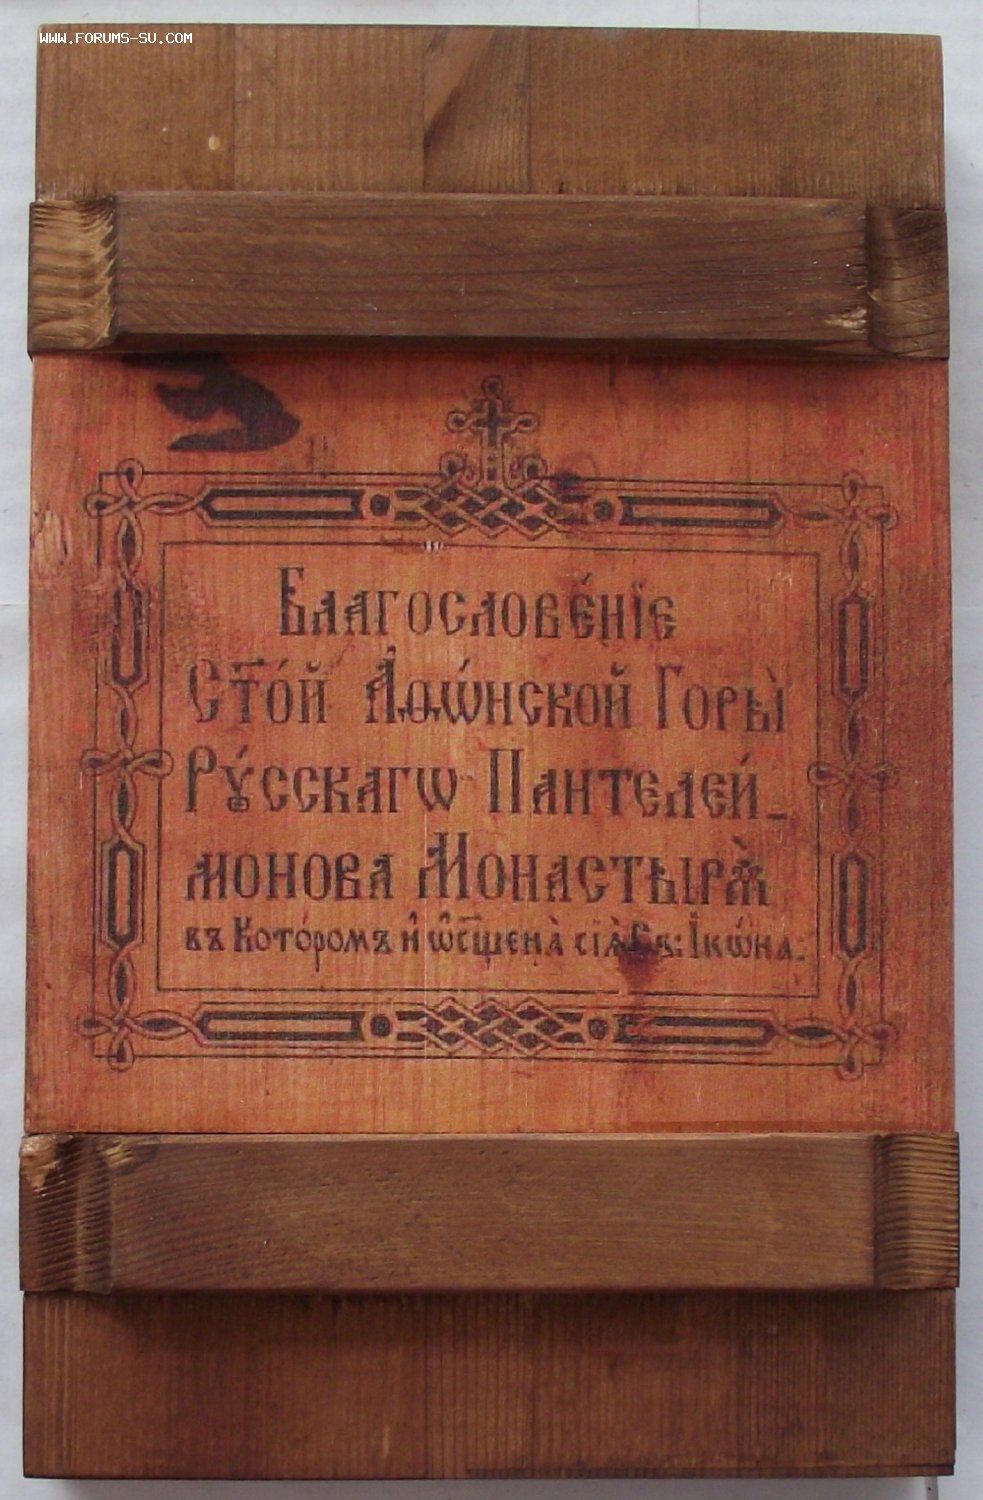 WWW.FORUMS-SU.COM
Благослове́нїе
Ст҃о́й Аѳѡ́нской Горы̀
Рꙋ́сскагѡ Пантелеи́_
монова Монастырѧ̀
въ Кото́ромъ и҆ ѡ҆сщ҃ена̀ сїѧ̀ Св: І҆кѡ́на.